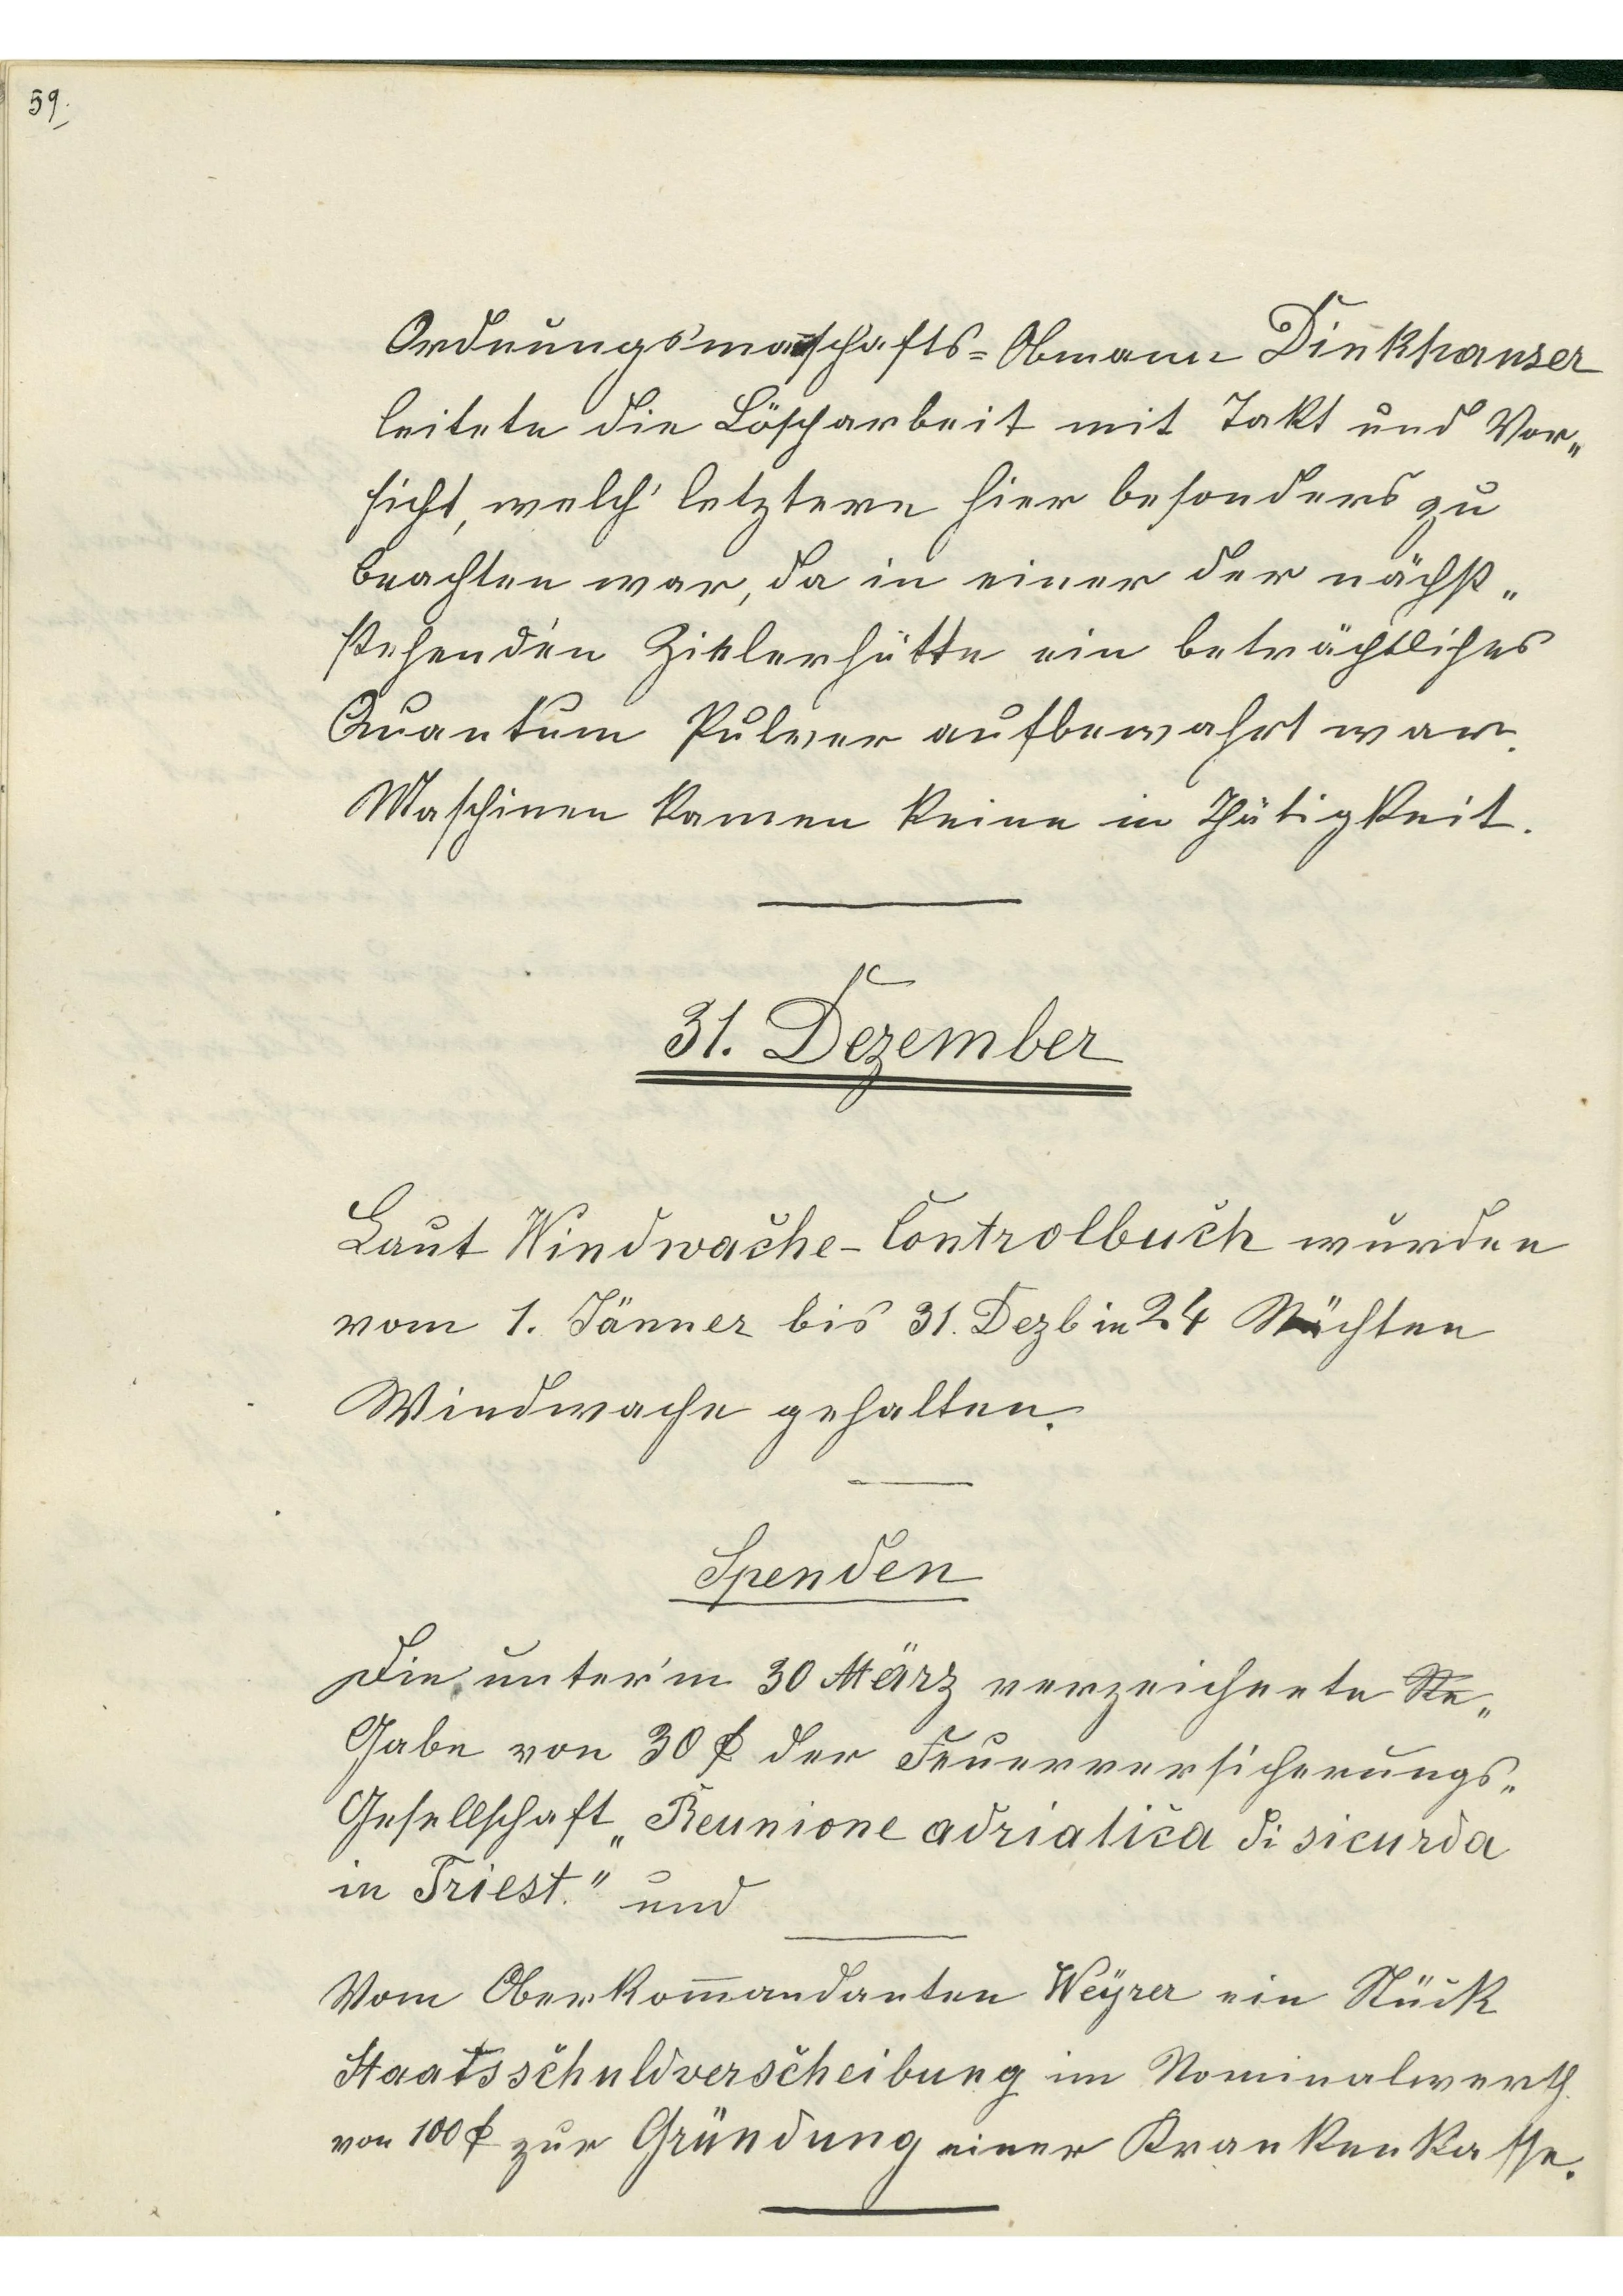 59.
Ordnungsmannschafts=Obmann Dinkhauser
leitete die Löscharbeit mit Takt und Vor„
sicht, welch' letztere hier besonders zu
beachten war, da in einer der nächst„
stehenden Zielerhütte ein beträchtliches
Quantum Pulver aufbewahrt war.
Maschinen kamen keine in Thätigkeit.
31. Dezember
Laut Windwache-Controlbuch wurden
vom 1. Jänner bis 31. Dezb in 24 Nächten
Windwache gehalten.
Spenden
Die unter'm 30 März verzeichnete
Gabe von 30 f der Feuerversicherungs„
Gesellschaft „Reunione adriatica di sicurda
in Triest." und
Vom Oberkom̅andanten Weÿrer ein Stück
Staatsschuldverscheibung im Nominalwerth
von 100 f zur Gründung einer Krankenkasse.